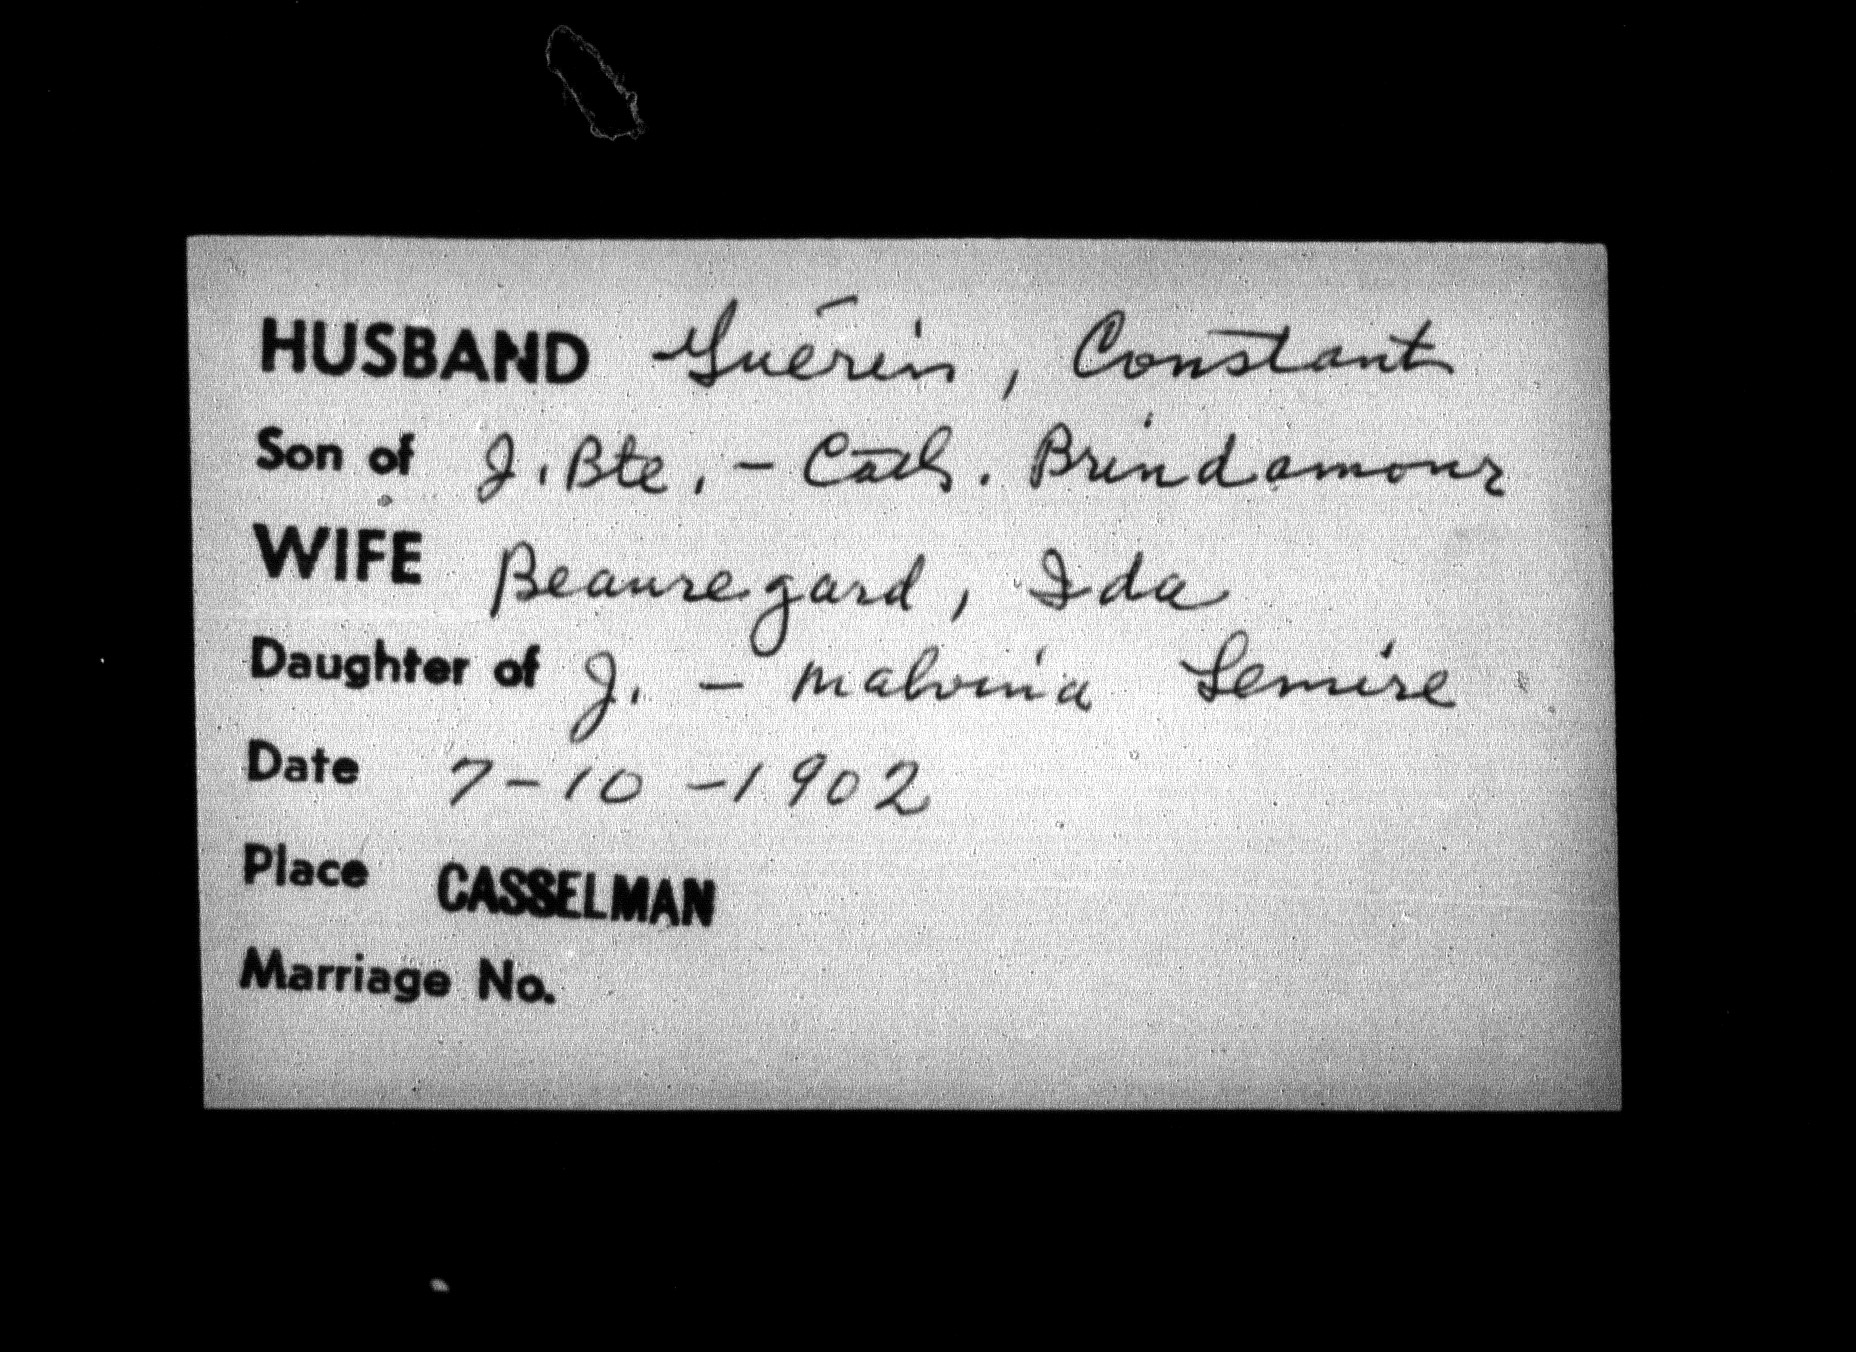 HUSBAND Guérin, Constant
Son of J. Bte. - Cath. Brindamour
WIFE Beauregard, Ida
Daughter of J. - Malvina Lemire
Date 7-10-1902
Place CASSELMAN
Marriage No.